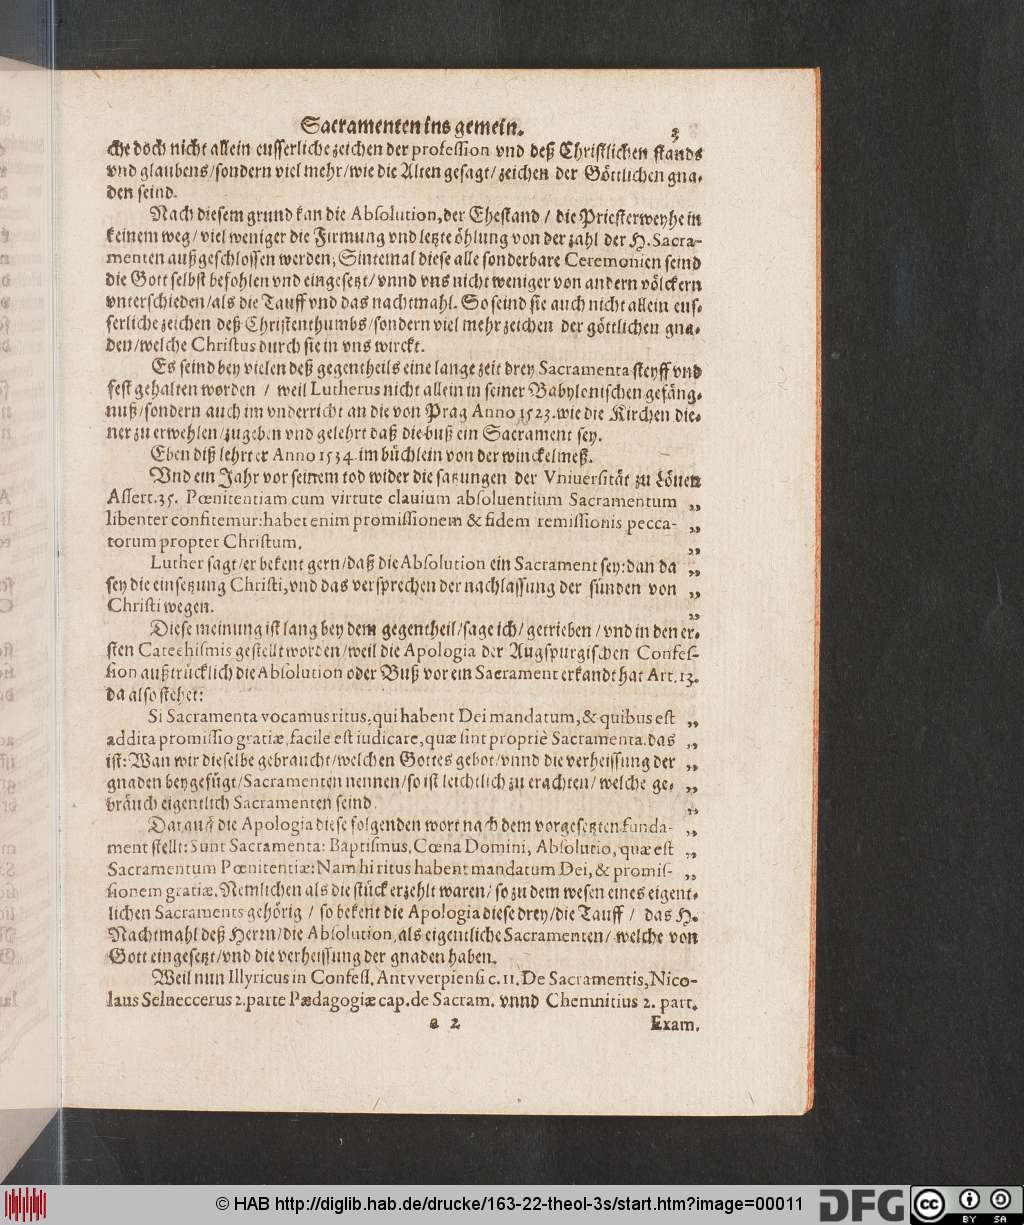 Sacramenten ins gemein. 3
che doch nicht allein eusserliche zeichen der profession vnd deß Christlichen stands
vnd glaubens/sondern viel mehr/wie die Alten gesagt/zeichen der Göttlichen gna-
den seind.
Nach diesem grund kan die Absolution,der Ehestand / die Priesterweyhe in
keinem weg/viel weniger die Firmung vnd letzte öhlung von der zahl der H. Sacra-
menten außgeschlossen werden; Sinteinal diese alle sonderbare Ceremonien seind
die Gott selbst befohlen vnd eingesetzt/vnnd vns nicht weniger von andern völckern
vnterschieden/als die Tauff vnd das nachtmahl. So seind sie auch nicht allein eus-
serliche zeichen deß Christenthumbs/sondern viel mehr zeichen der göttlichen gna-
den/welche Christus durch sie in vns wirckt.
Es seind bey vielen deß gegentheils eine lange zeit drey Sacramenta steyff vnd
fest gehalten worden / weil Lutherus nicht allein in seiner Babylonischen gefäng-
nuß/sondern auch im vnderricht an die von Prag Anno 1523.wie die Kirchen die-
ner zu erwehlen/zugeben vnd gelehrt daß die buß ein Sacrament sey.
Eben diß lehrt er Anno 1534 im büchlein von der winckelmeß.
Vnd ein Jahr vor seinem tod wider die satzungen der Vniuersität zu Löuen
Assert.35. Pœnitentiam cum virtute clauium absoluentium Sacramentum „
libenter confitemur:habet enim promissionem & fidem remissionis pecca- „
torum propter Christum. „
Luther sagt/er bekent gern/daß die Absolution ein Sacrament sey:dan da „
sey die einsetzung Christi,vnd das versprechen der nachlassung der sünden von „
Christi wegen. „
Diese meinung ist lang bey dem gegentheil/sage ich/getrieben/vnd in den er-
sten Catechismis gestellt worden/weil die Apologia der Augspurgischen Confes-
sion außtrücklich die Absolution oder Buß vor ein Sacrament erkandt hat Art.13.
da also stehet:
Si Sacramenta vocamus ritus,qui habent Dei mandatum,& quibus est „
addita promissio gratiæ,facile est iudicare,quæ sint propriè Sacramenta.das „
ist: Wan wir dieselbe gebräucht/welchen Gottes gebot/vnnd die verheissung der „
gnaden beygefügt/Sacramenten nennen/so ist leichtlich zu erachten/welche ge- „
bräuch eigentlich Sacramenten seind. „
Darauff die Apologia diese folgenden wort nach dem vorgesetzten funda- „
ment stellt: Sunt Sacramenta: Baptismus, Cœna Domini, Absolutio, quæ est „
Sacramentum Pœnitentiæ: Nam hi ritus habent mandatum Dei, & promis- „
sionem gratiæ. Nemlichen als die stück erzehlt waren/so zu dem wesen eines eigent-
lichen Sacraments gehörig / so bekent die Apologia diese drey/die Tauff / das H.
Nachtmahl deß Herrn/die Absolution,als eigentliche Sacramenten/welche von
Gott eingesetzt/vnd die verheissung der gnaden haben.
Weil nun Illyricus in Confess. Antvverpiensi c.11. De Sacramentis, Nico-
laus Selneccerus 2.parte Pædagogiæ cap.de Sacram. vnnd Chemnitius 2. part.
a 2 Exam.
© HAB http://diglib.hab.de/drucke/163-22-theol-3s/start.htm?image=00011
DFG
cc BY SA